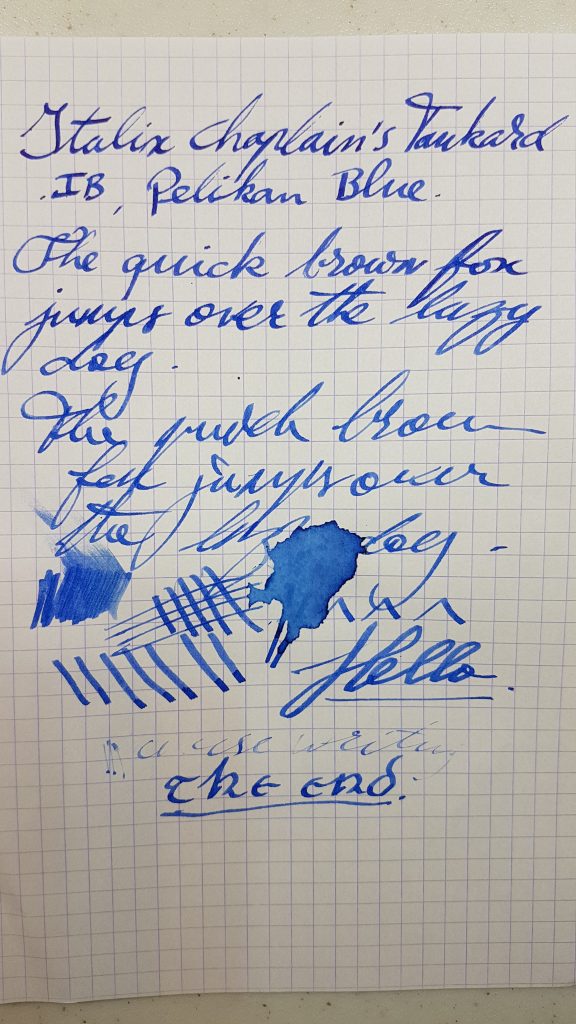 Italix Chaplain's Tankard
.IB, Pelikan Blue.
The quick brown fox
jumps over the lazy
dog.
The quick brown
fox jumps over
the lazy dog.
Hello.
writing
The end.